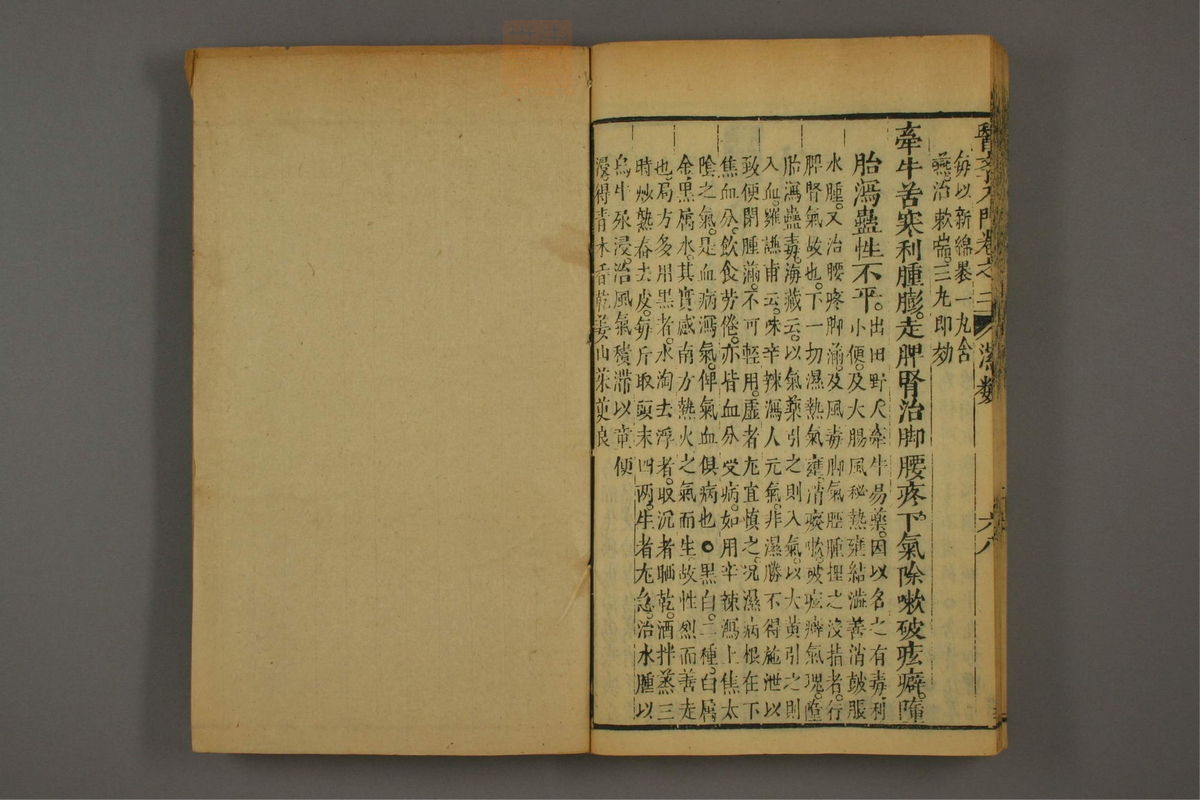 醫學入門卷之二 濕類 六八
每以新綿裹一丸含
嚥治嗽喘三丸即効
牽牛苦寒利腫膨走脾腎治脚腰疼下氣除嗽破痃癖墮
胎瀉蠱性不平
出田野人牽牛易藥因以名之有毒利
小便及大腸風秘熱壅結澁善消皷脹
水腫又治腰疼脚滿及風毒脚氣脛腫捏之沒指者行
脾腎氣故也下一切濕熱氣壅消痰嗽破痃癖氣塊墮
胎瀉蠱毒海藏云以氣藥引之則入氣以大黃引之則
入血羅謙甫云味辛辣瀉人元氣非濕勝不得施泄以
致便閉腫滿不可輕用虛者尤宜慎之况濕病根在下
焦血分飲食劳倦亦皆血分受病如用辛辣瀉上焦太
陰之氣是血病瀉氣俾氣血俱病也○黑白二種白属
金黑属水其實感南方熱火之氣而生故性烈而善走
也局方多用黑者水淘去浮者取沉者晒乾酒拌蒸三
時炒熟舂去皮每斤取頭末四两生者尤急治水腫以
烏牛尿浸治風氣積滯以童便
浸得青木香乾姜山茱萸良